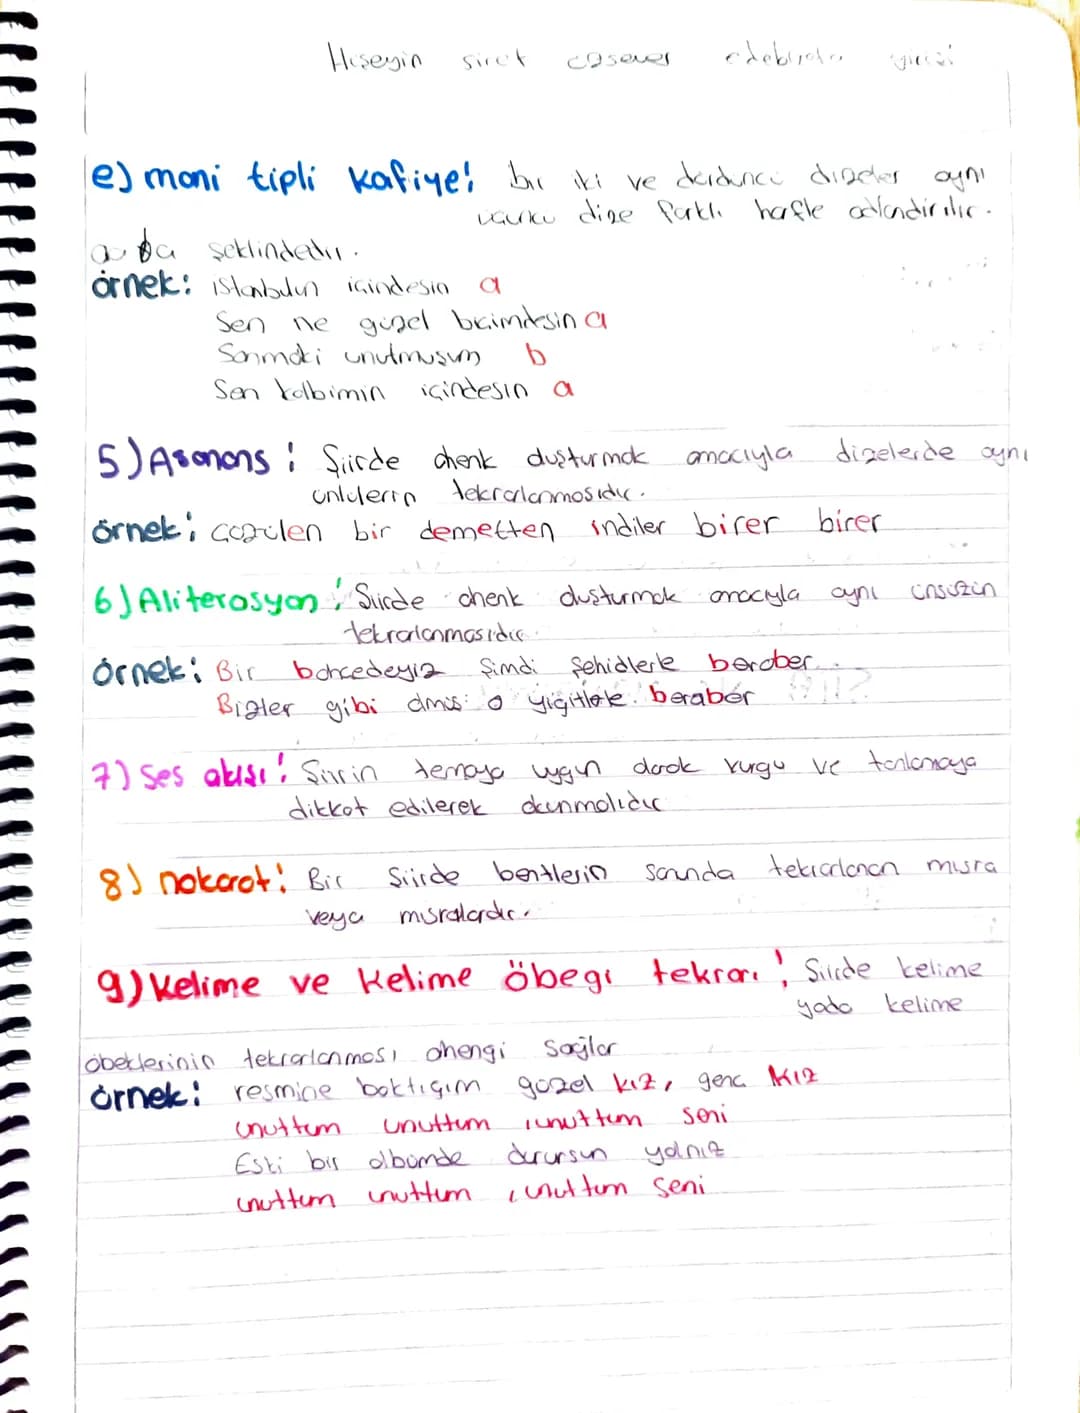 Hüseyin siret
e) mani tipli kafiye: bir iki ve dördüncü dizeler aynı
üçüncü dize farklı harfle adlandırılır.
aaba şeklindedir.
örnek: istanbulun içindesin a
Sen ne güzel biçimdesin a
Sanmaki unutmuşum b
Sen kalbimin içindesin a
5) Asonans: Şiirde ahenk oluşturmak amacıyla dizelerde aynı
ünlülerin tekrarlanmasıdır.
örnek: çözülen bir demetten indiler birer birer
6) Aliterasyon: Şiirde ahenk oluşturmak amacıyla aynı ünsüzün
tekrarlanmasıdır.
örnek: Bir bahçedeyiz şimdi şehidlerle beraber
Bizler gibi ölmüş o yiğitlerle beraber
7) Ses akışı: Şiirin temaya uygun olarak vurgu ve tonlamaya
dikkat edilerek okunmalıdır
8) nakarat: Bir Şiirde bentlerin sonunda tekrarlanan mısra
veya mısralardır.
9) Kelime ve Kelime öbeği tekrarı: Şiirde kelime
yada kelime
öbeklerinin tekrarlanması ahengi sağlar
örnek: resmine baktığım güzel kız, genç kız
unuttum unuttum, unuttum seni
Eski bir albümde durursun yalnız
unuttum unuttum, unuttum seni